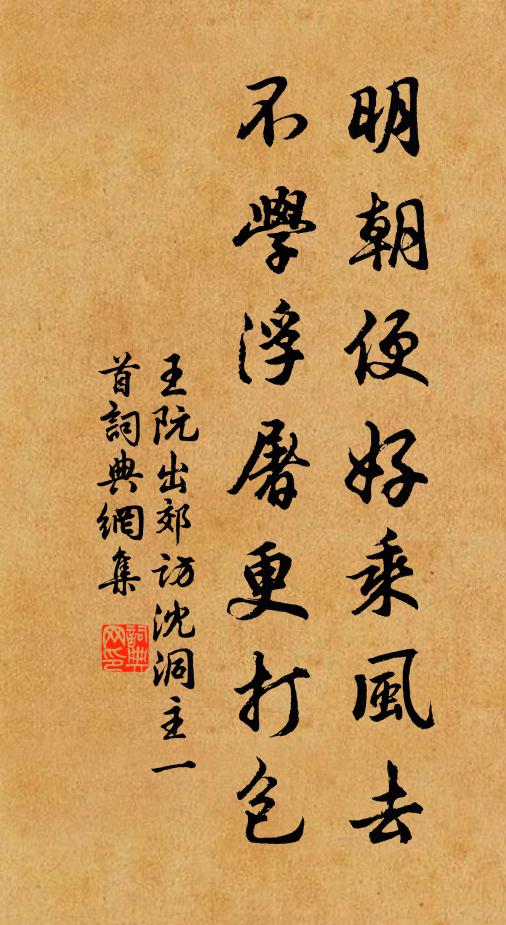 明朝便好乘風去
不學浮屠更打包
王阮出郊訪沈洞主一
首詞典網集
詞典网印